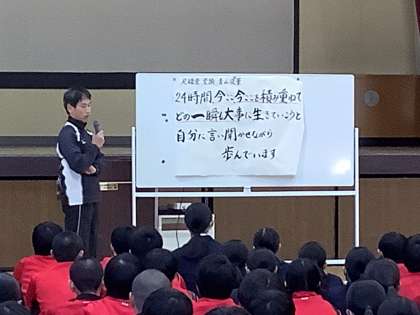 24時間、今ここ今ここを積み重ねて
どの一瞬も大事に生きていこうと
自分に言い聞かせながら
歩んでいます